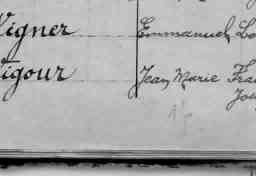 Vigner Emmanuel Lo
Tigour Jean Marie Fra
Jo